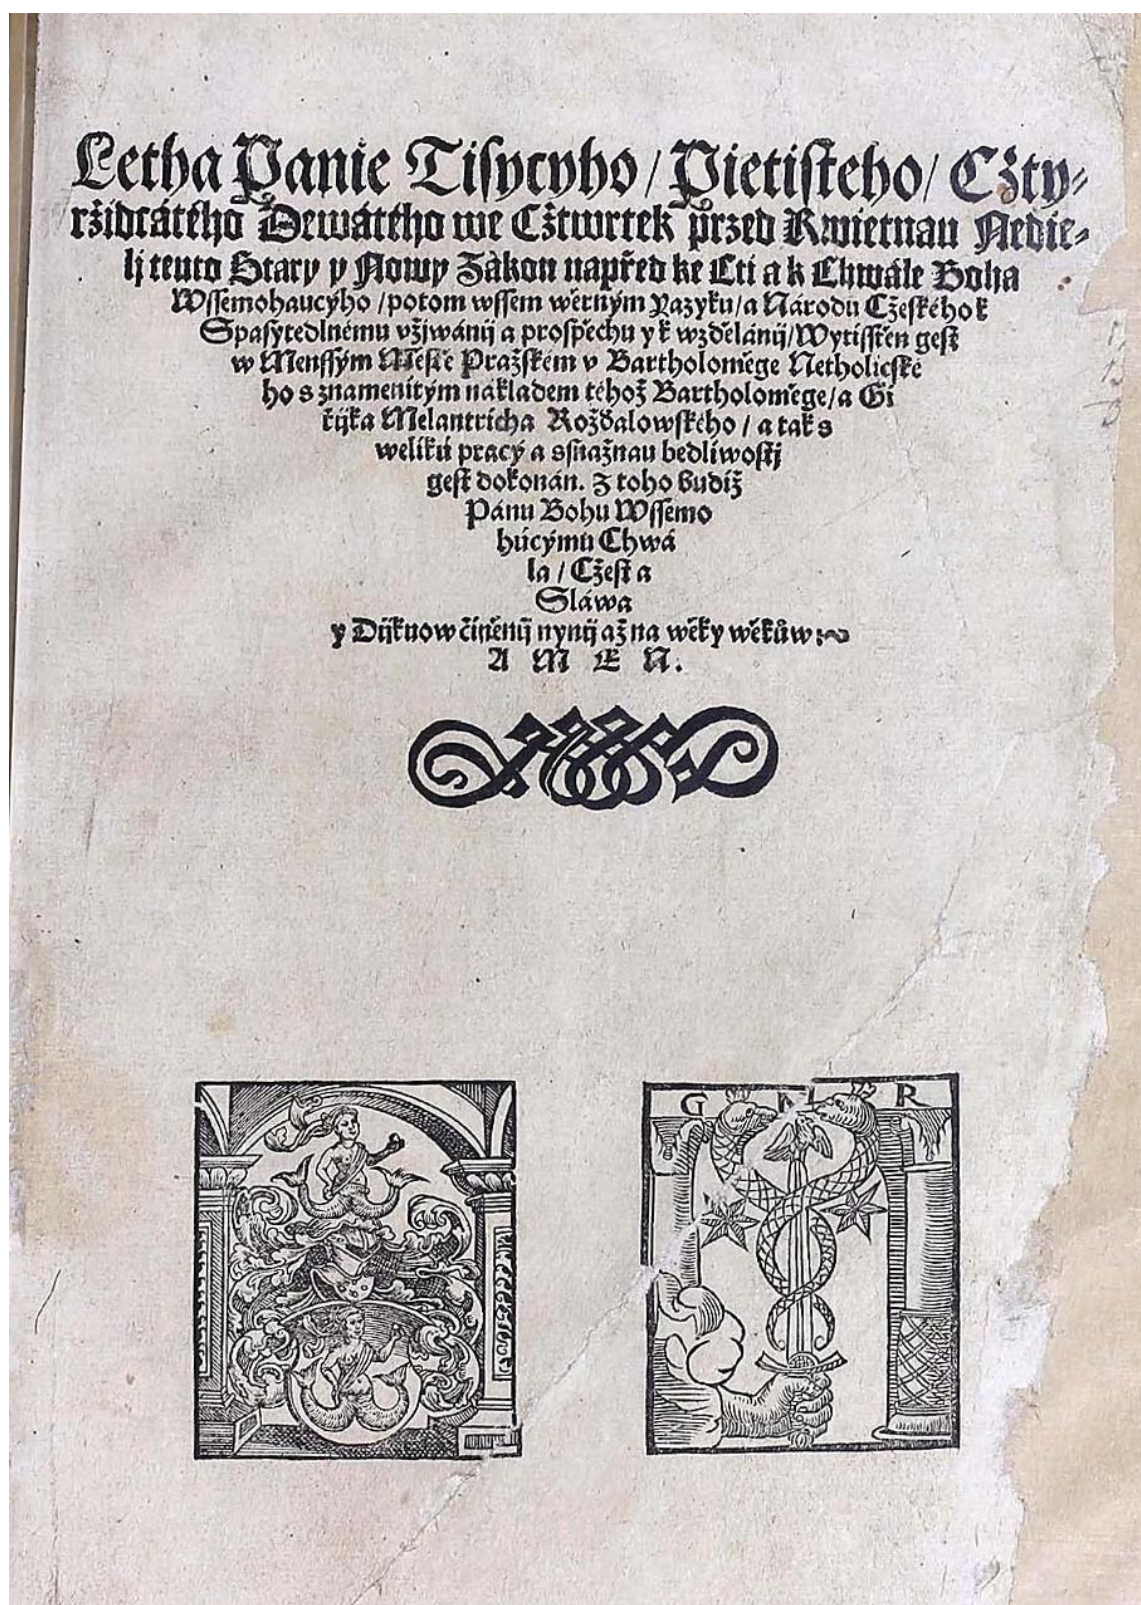 Letha Panie Tisycyho / Pietisteho / Cžty-
ržidcátého Dewátého we Cžtwrtek przed Kwietnau Nedie-
lj tento Stary y Nowy Zákon napřed ke Cti a k Chwále Boha
Wssemohaucýho / potom wssem wěrným Yazyku / a Národu Cžeského k
Spasytedlnému vžjwánij a prospěchu y k wzdělánij / Wytisstěn gest
w Menssým Městě Pražském v Bartholoměge Netholicské
ho s znamenitým nákladem téhož Bartholoměge / a Gi
řijka Melantricha Roždalowského / a tak s
welikú pracý a snažnau bedliwostj
gest dokonán. Z toho budiž
Pánu Bohu Wssemo
húcýmu Chwá
la / Cžest a
Sláwa
y Dijkuow činěnij nynij až na wěky wěkůw
A M E N.
G N R